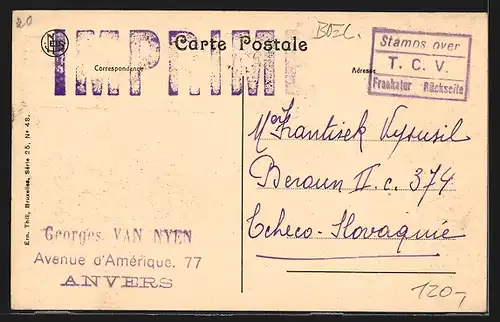 20
BDEC.
Carte Postale
Correspondance
Adresse
IMPRIMÉ
Stamps over
T. C. V.
Frankatur Rückseite
Ern. Thill, Bruxelles, Série 25, No 48.
Mr Frantisek Vysusil
Beraun II. c. 374
Tcheco-Slovaquie
Georges VAN NYEN
Avenue d'Amérique, 77
ANVERS
120,-